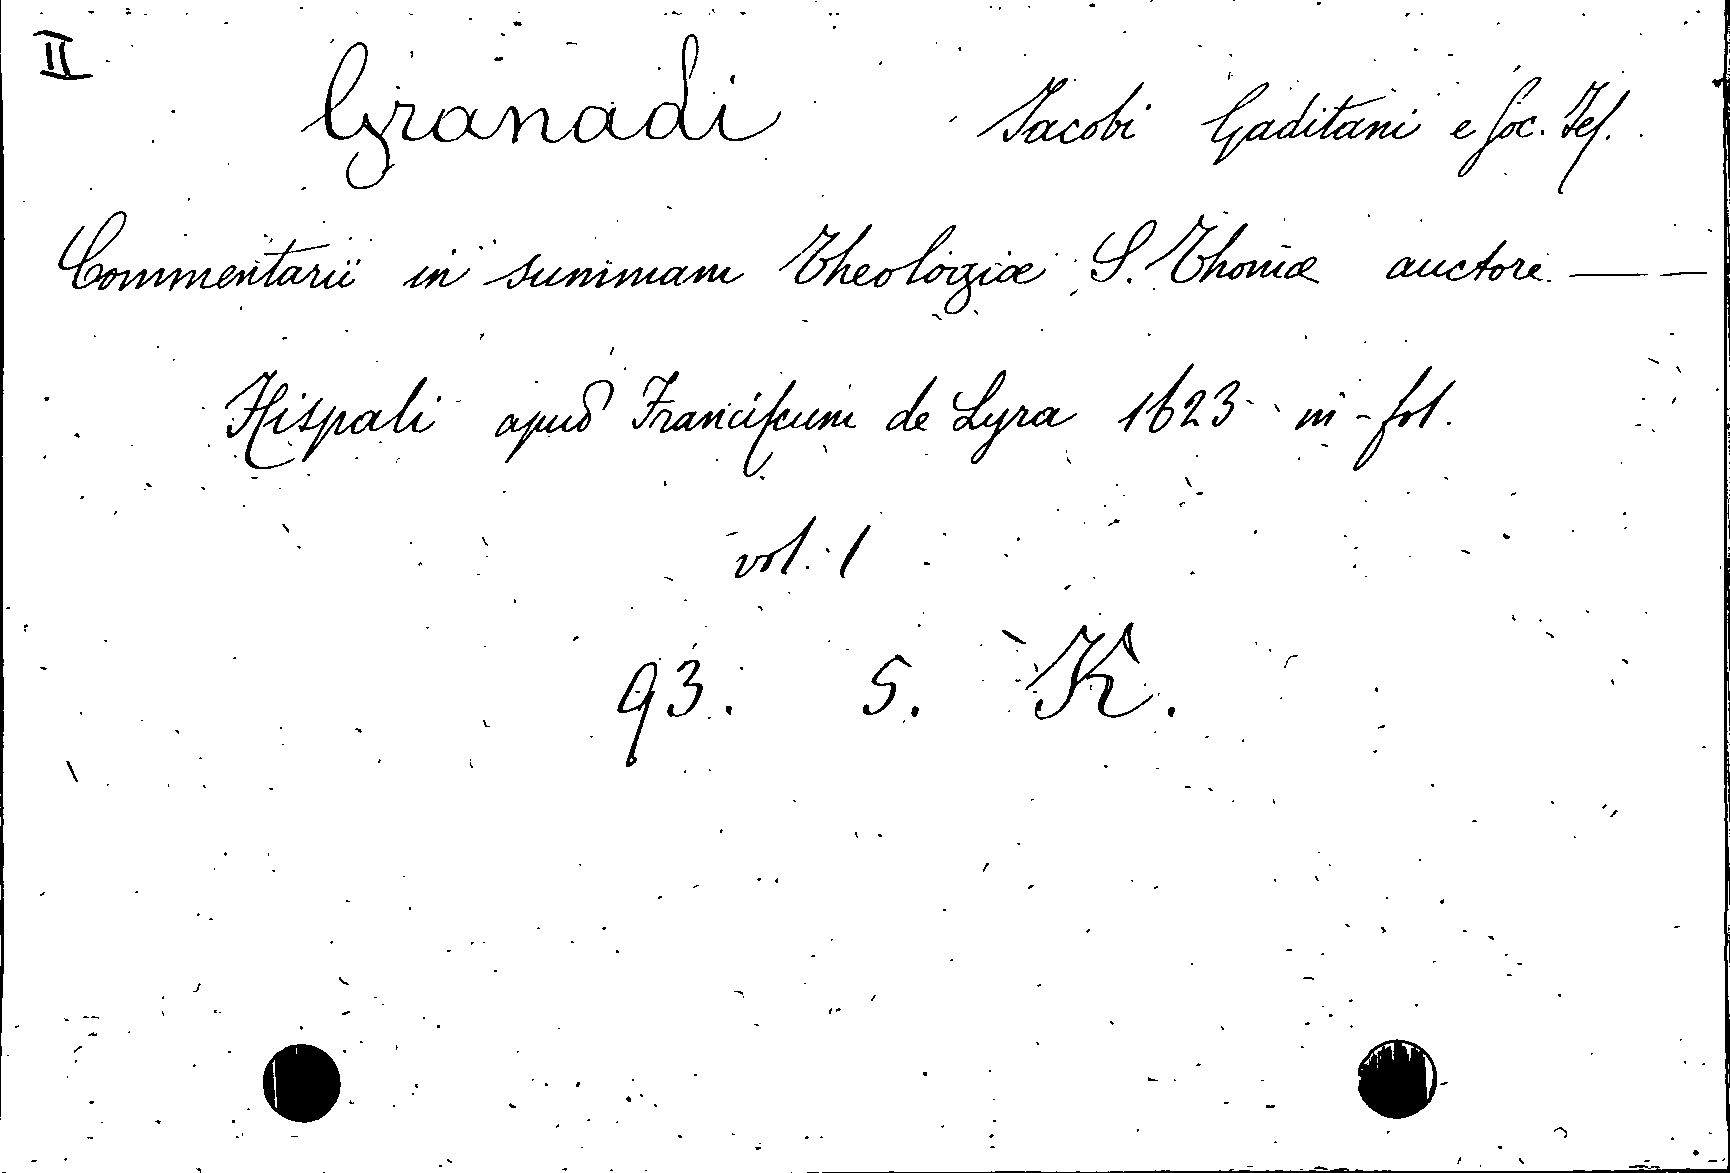 II
Granadi Jacobi Gaditani e Soc. Jes.
Commentarii in summam Theologiæ S. Thomæ auctore — —
Hispali apud Franciscum de Lyra 1623 in-fol.
vol. 1
93. 5. K.